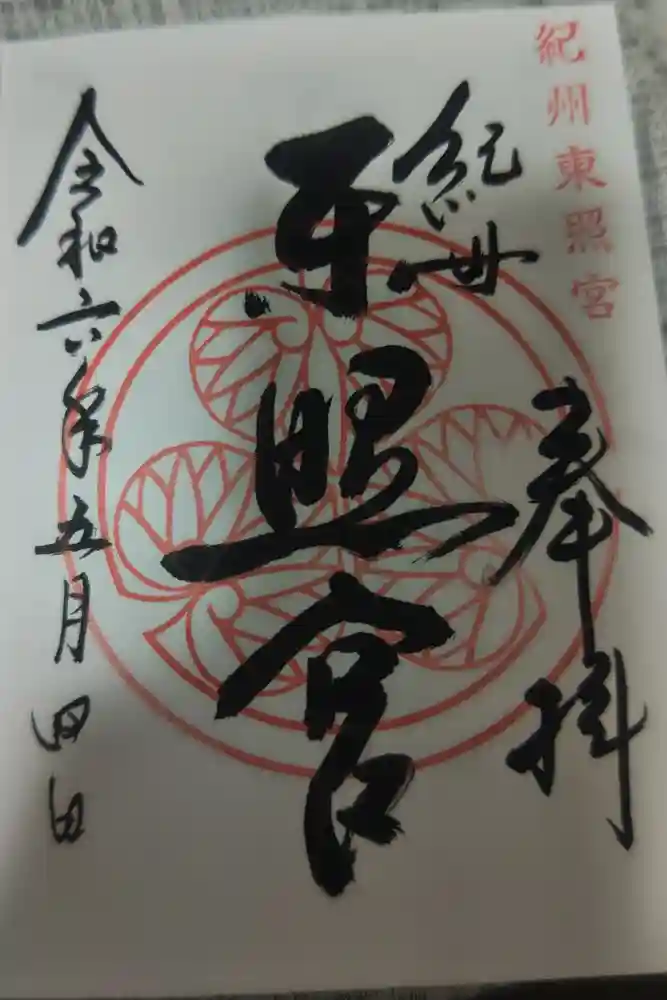 紀州東照宮
奉拝
紀州
東照宮
令和六年五月四日